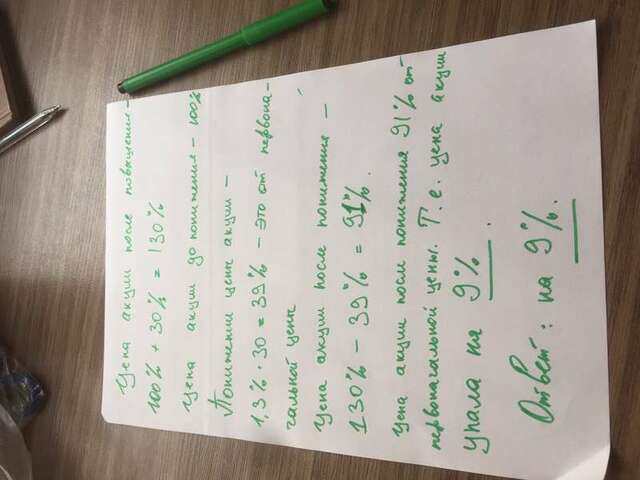 Цена акции после повышения –
100% + 30% = 130%
Цена акции до понижения – 100%
Понижении цены акции –
1,3% · 30 = 39% – это от первона-
чальной цены
Цена акции после понижения –
130% – 39% = 91%.
Цена акции после понижения 91% от
первоначальной цены. Т.е. цена акции
упала на 9%.
Ответ: на 9%.